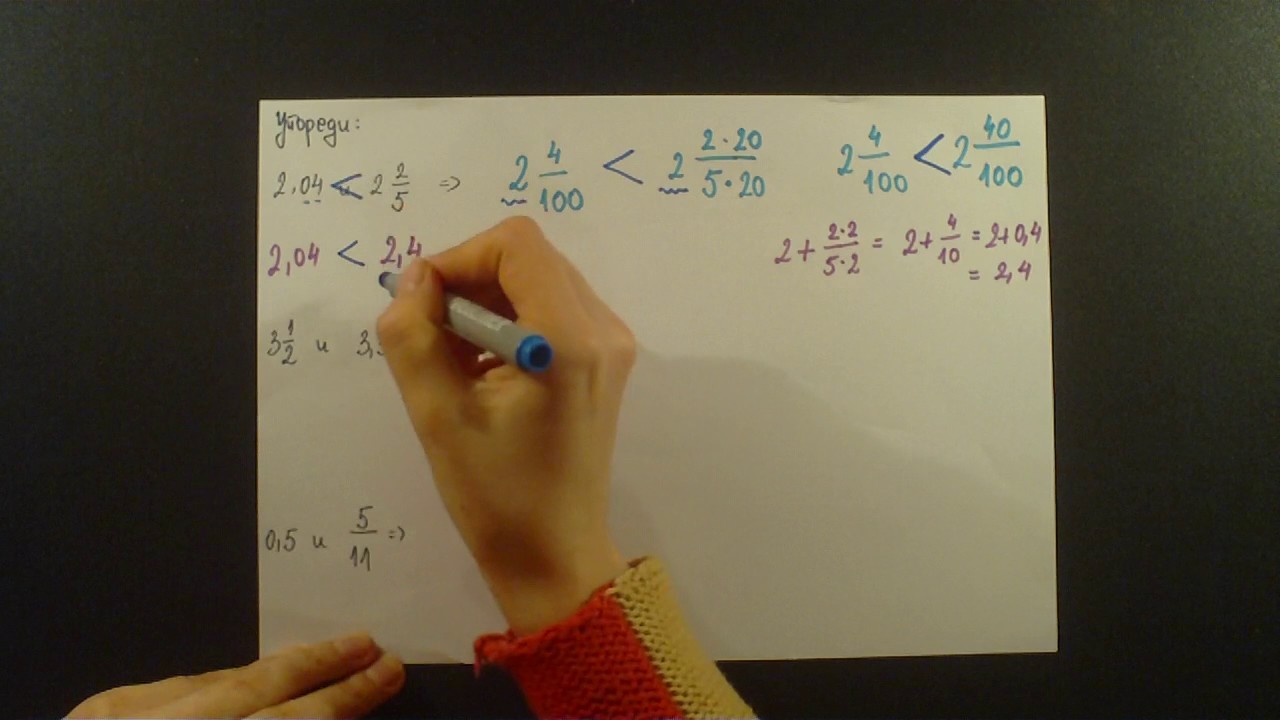 Упореди:
2,04 < 2 2/5 => 2 4/100 < 2 2·20/5·20 2 4/100 < 2 40/100
2,04 < 2,4 2 + 2·2/5·2 = 2 + 4/10 = 2+0,4
= 2,4
3 1/2 и 3,
0,5 и 5/11 =>